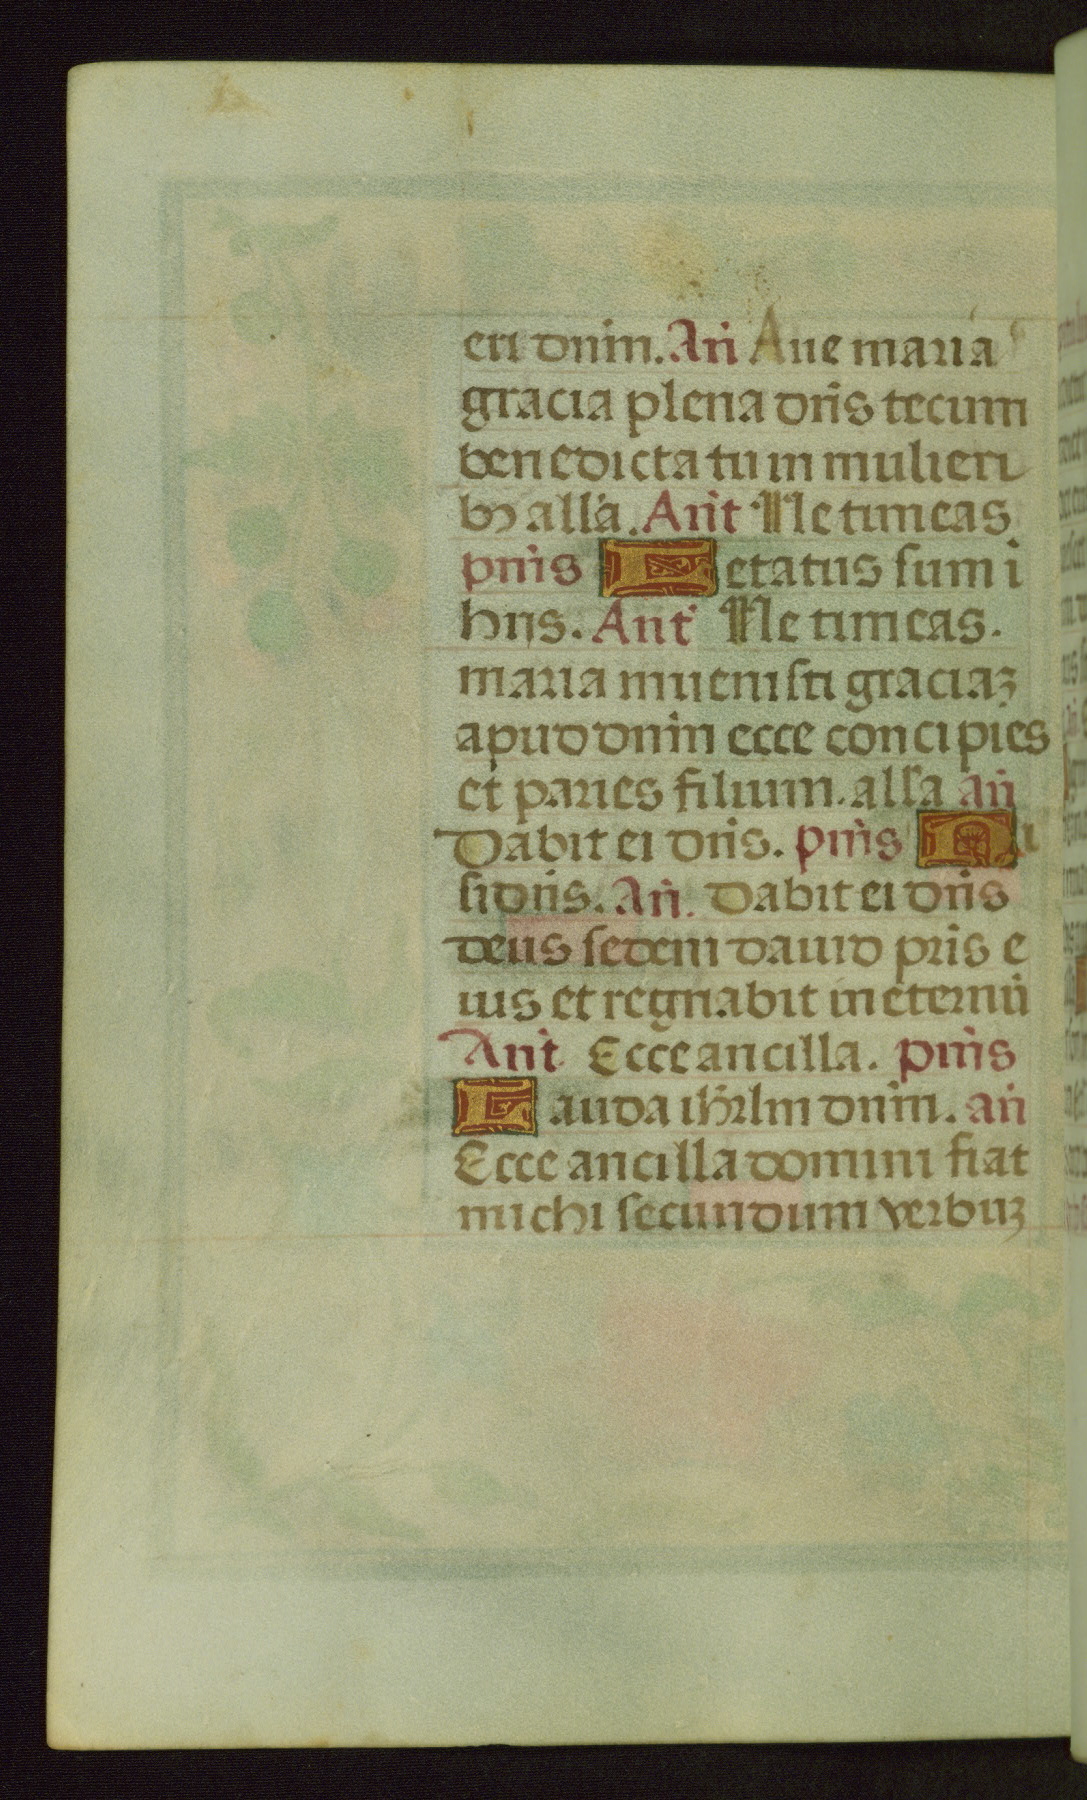 eri dnm̄. Añ Aue maria
gracia plena dñs tecum
benedicta tu in mulieri
bꝫ alľa. Añt Ne timeas
psm̄s Letatus sum i
hiis. Añt Ne timeas.
maria inuenisti graciaꝫ
apud dnm̄ ecce concipies
et paries filium. alľa añ
Dabit ei dñs. psm̄s Ni
si dñs. Añ. Dabit ei dñs
deus sedem dauid pr̄is e
ius et regnabit in eternū
Añt Ecce ancilla. psm̄s
Lauda ihrlm dnm̄. añ
Ecce ancilla domini fiat
michi secundum verbuꝫ